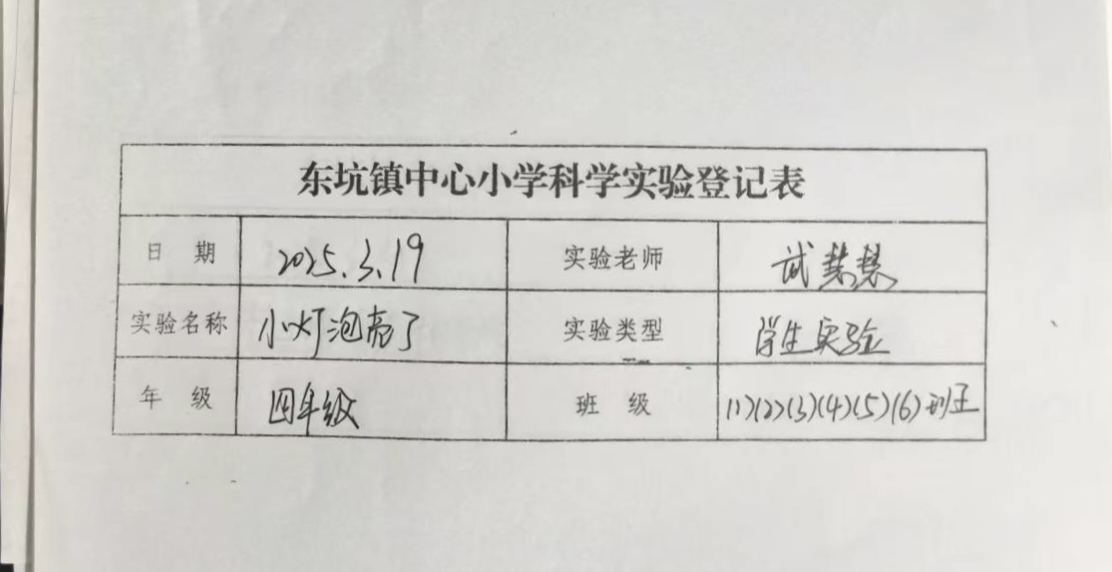 东坑镇中心小学科学实验登记表
日 期 2025.3.19 实验老师 慧慧
实验名称 小灯泡亮了 实验类型 学生实验
年 级 四年级 班 级 (1)(2)(3)(4)(5)(6)